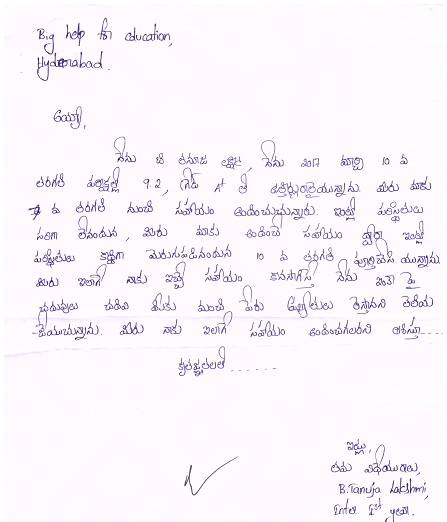 Big help for education,
Hyderabad.
అయ్యా,
నేను బి. తనూజ లక్ష్మి, నేను 2017 మార్చి 10 వ
తరగతి పరీక్షల్లో 9.2, గ్రేడ్ A+ తో ఉత్తీర్ణురాలైయున్నాను. మీరు మాకు
6 వ తరగతి నుంచి సహాయం అందించుచున్నారు. ఇంట్లో పరిస్థితులు
సరిగా లేనందున, మీరు మాకు అందించే సహాయం ద్వారా ఇంట్లో
పరిస్థితులు కొద్దిగా మెరుగుపడినందున 10 వ తరగతి పూర్తిచేసి యున్నాను
మీరు ఇలాగే నాకు ఇచ్చే సహాయం కొనసాగిస్తే నేను ఇంకా పై
చదువులు చదివి మీకు మంచి పేరు ప్రఖ్యాతులు తెస్తానని తెలియ
జేయుచున్నాను. మీరు నాకు ఇలాగే సహాయం అందించగలరని ఆశిస్తూ.....
కృతజ్ఞతలతో......
ఇట్లు,
తమ విధేయురాలు,
B. Tanuja Lakshmi,
Inter Ist year.